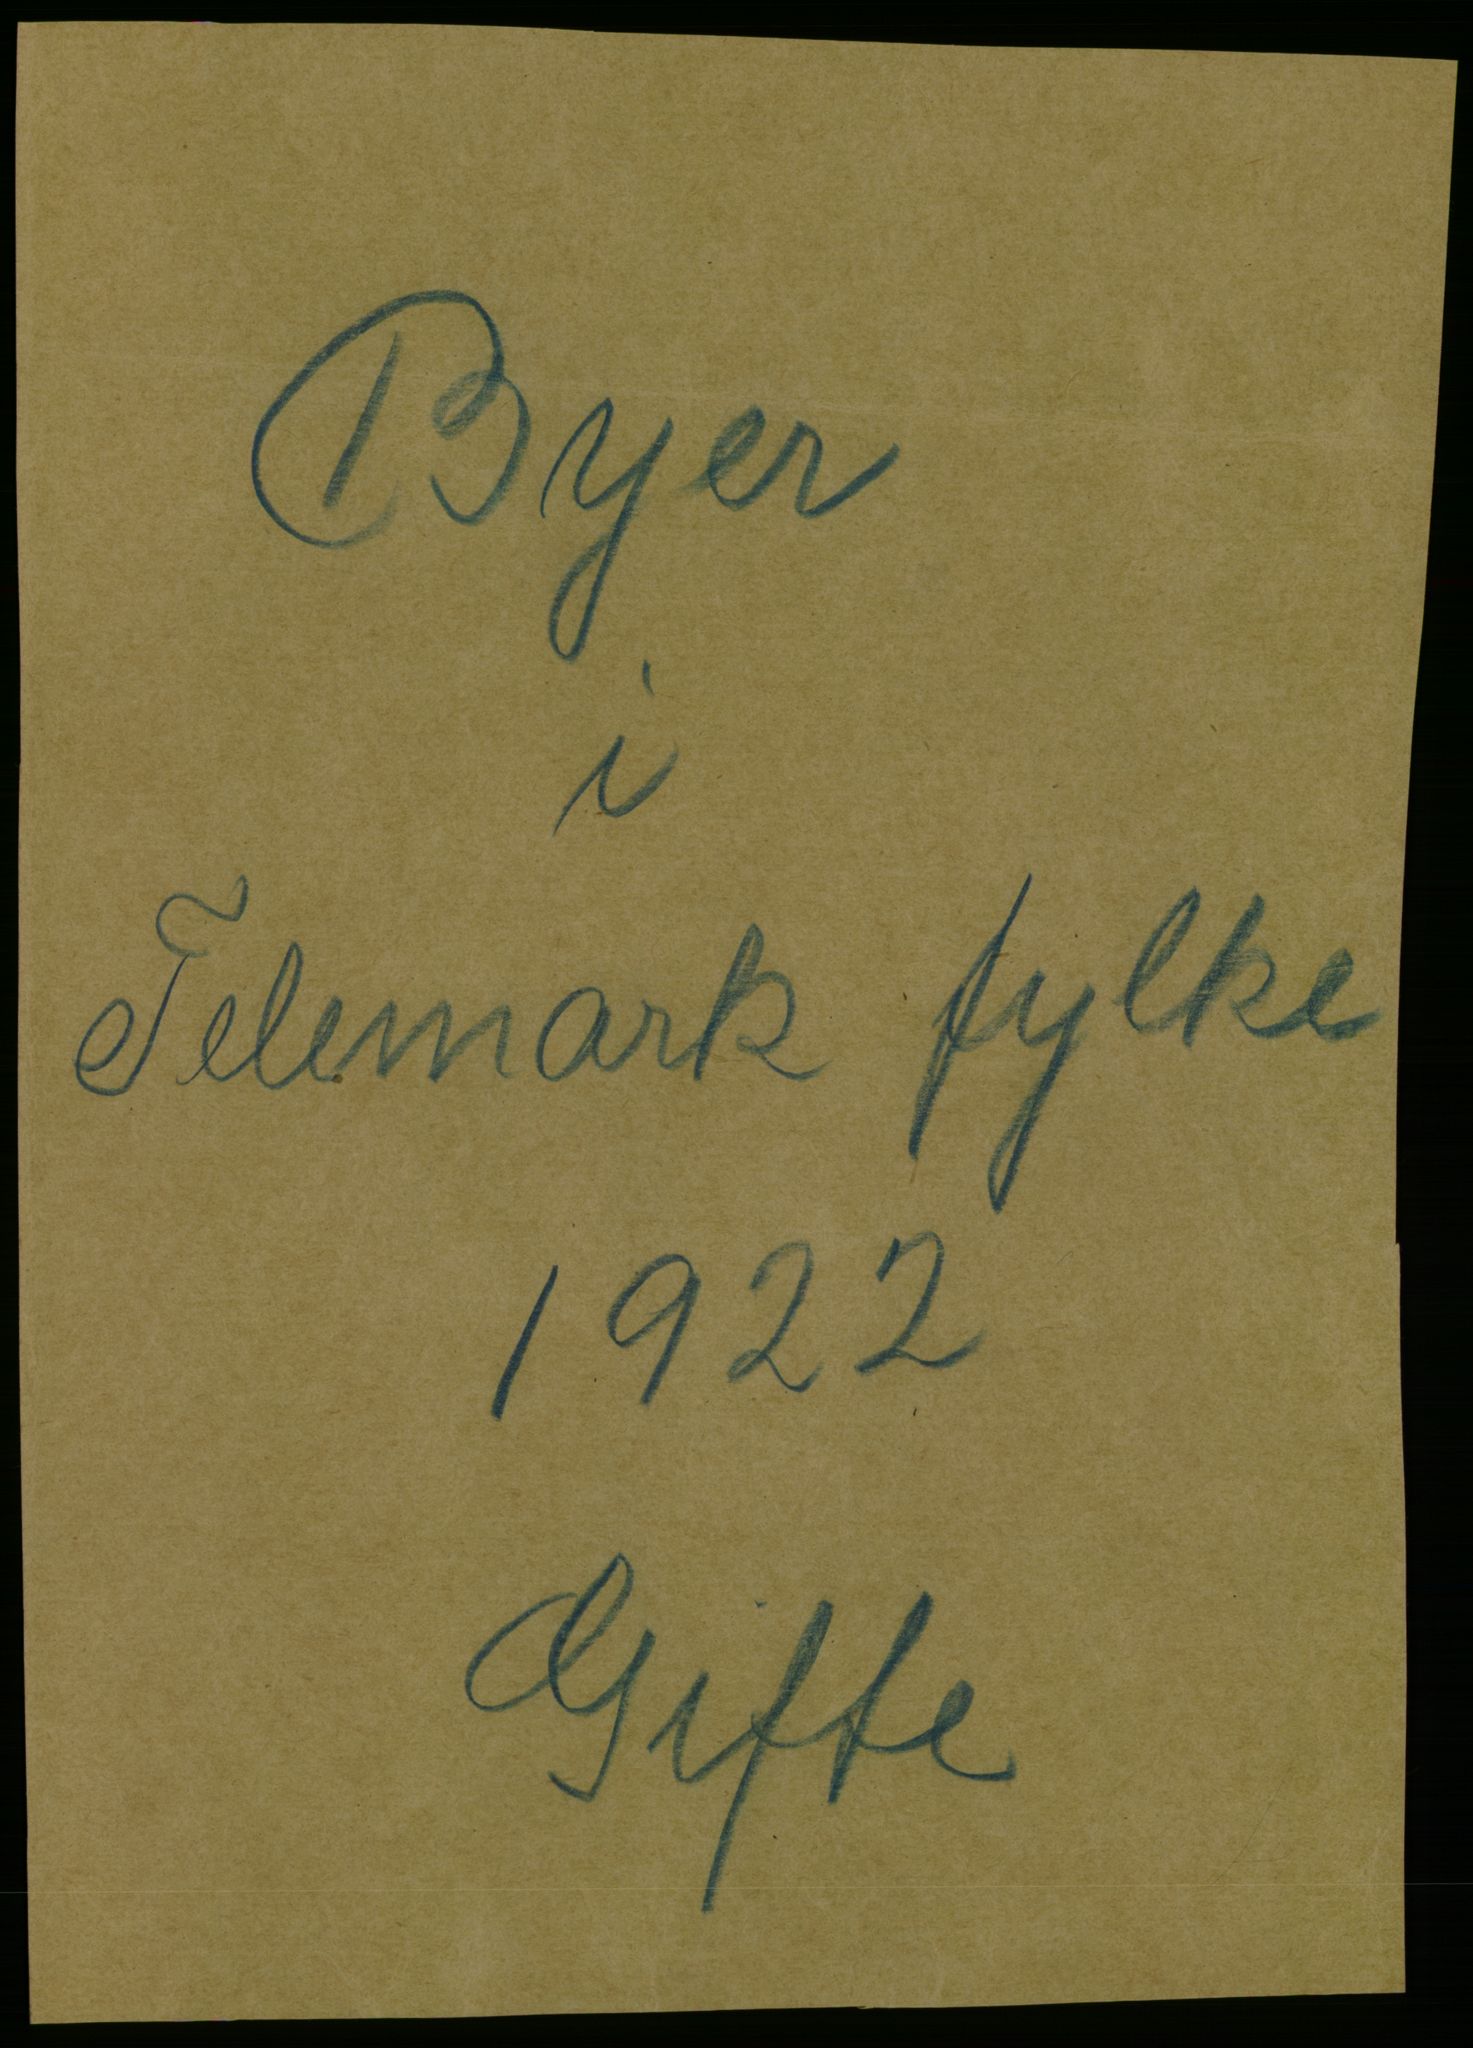 Byer
i
Telemark fylke
1922
Gifte